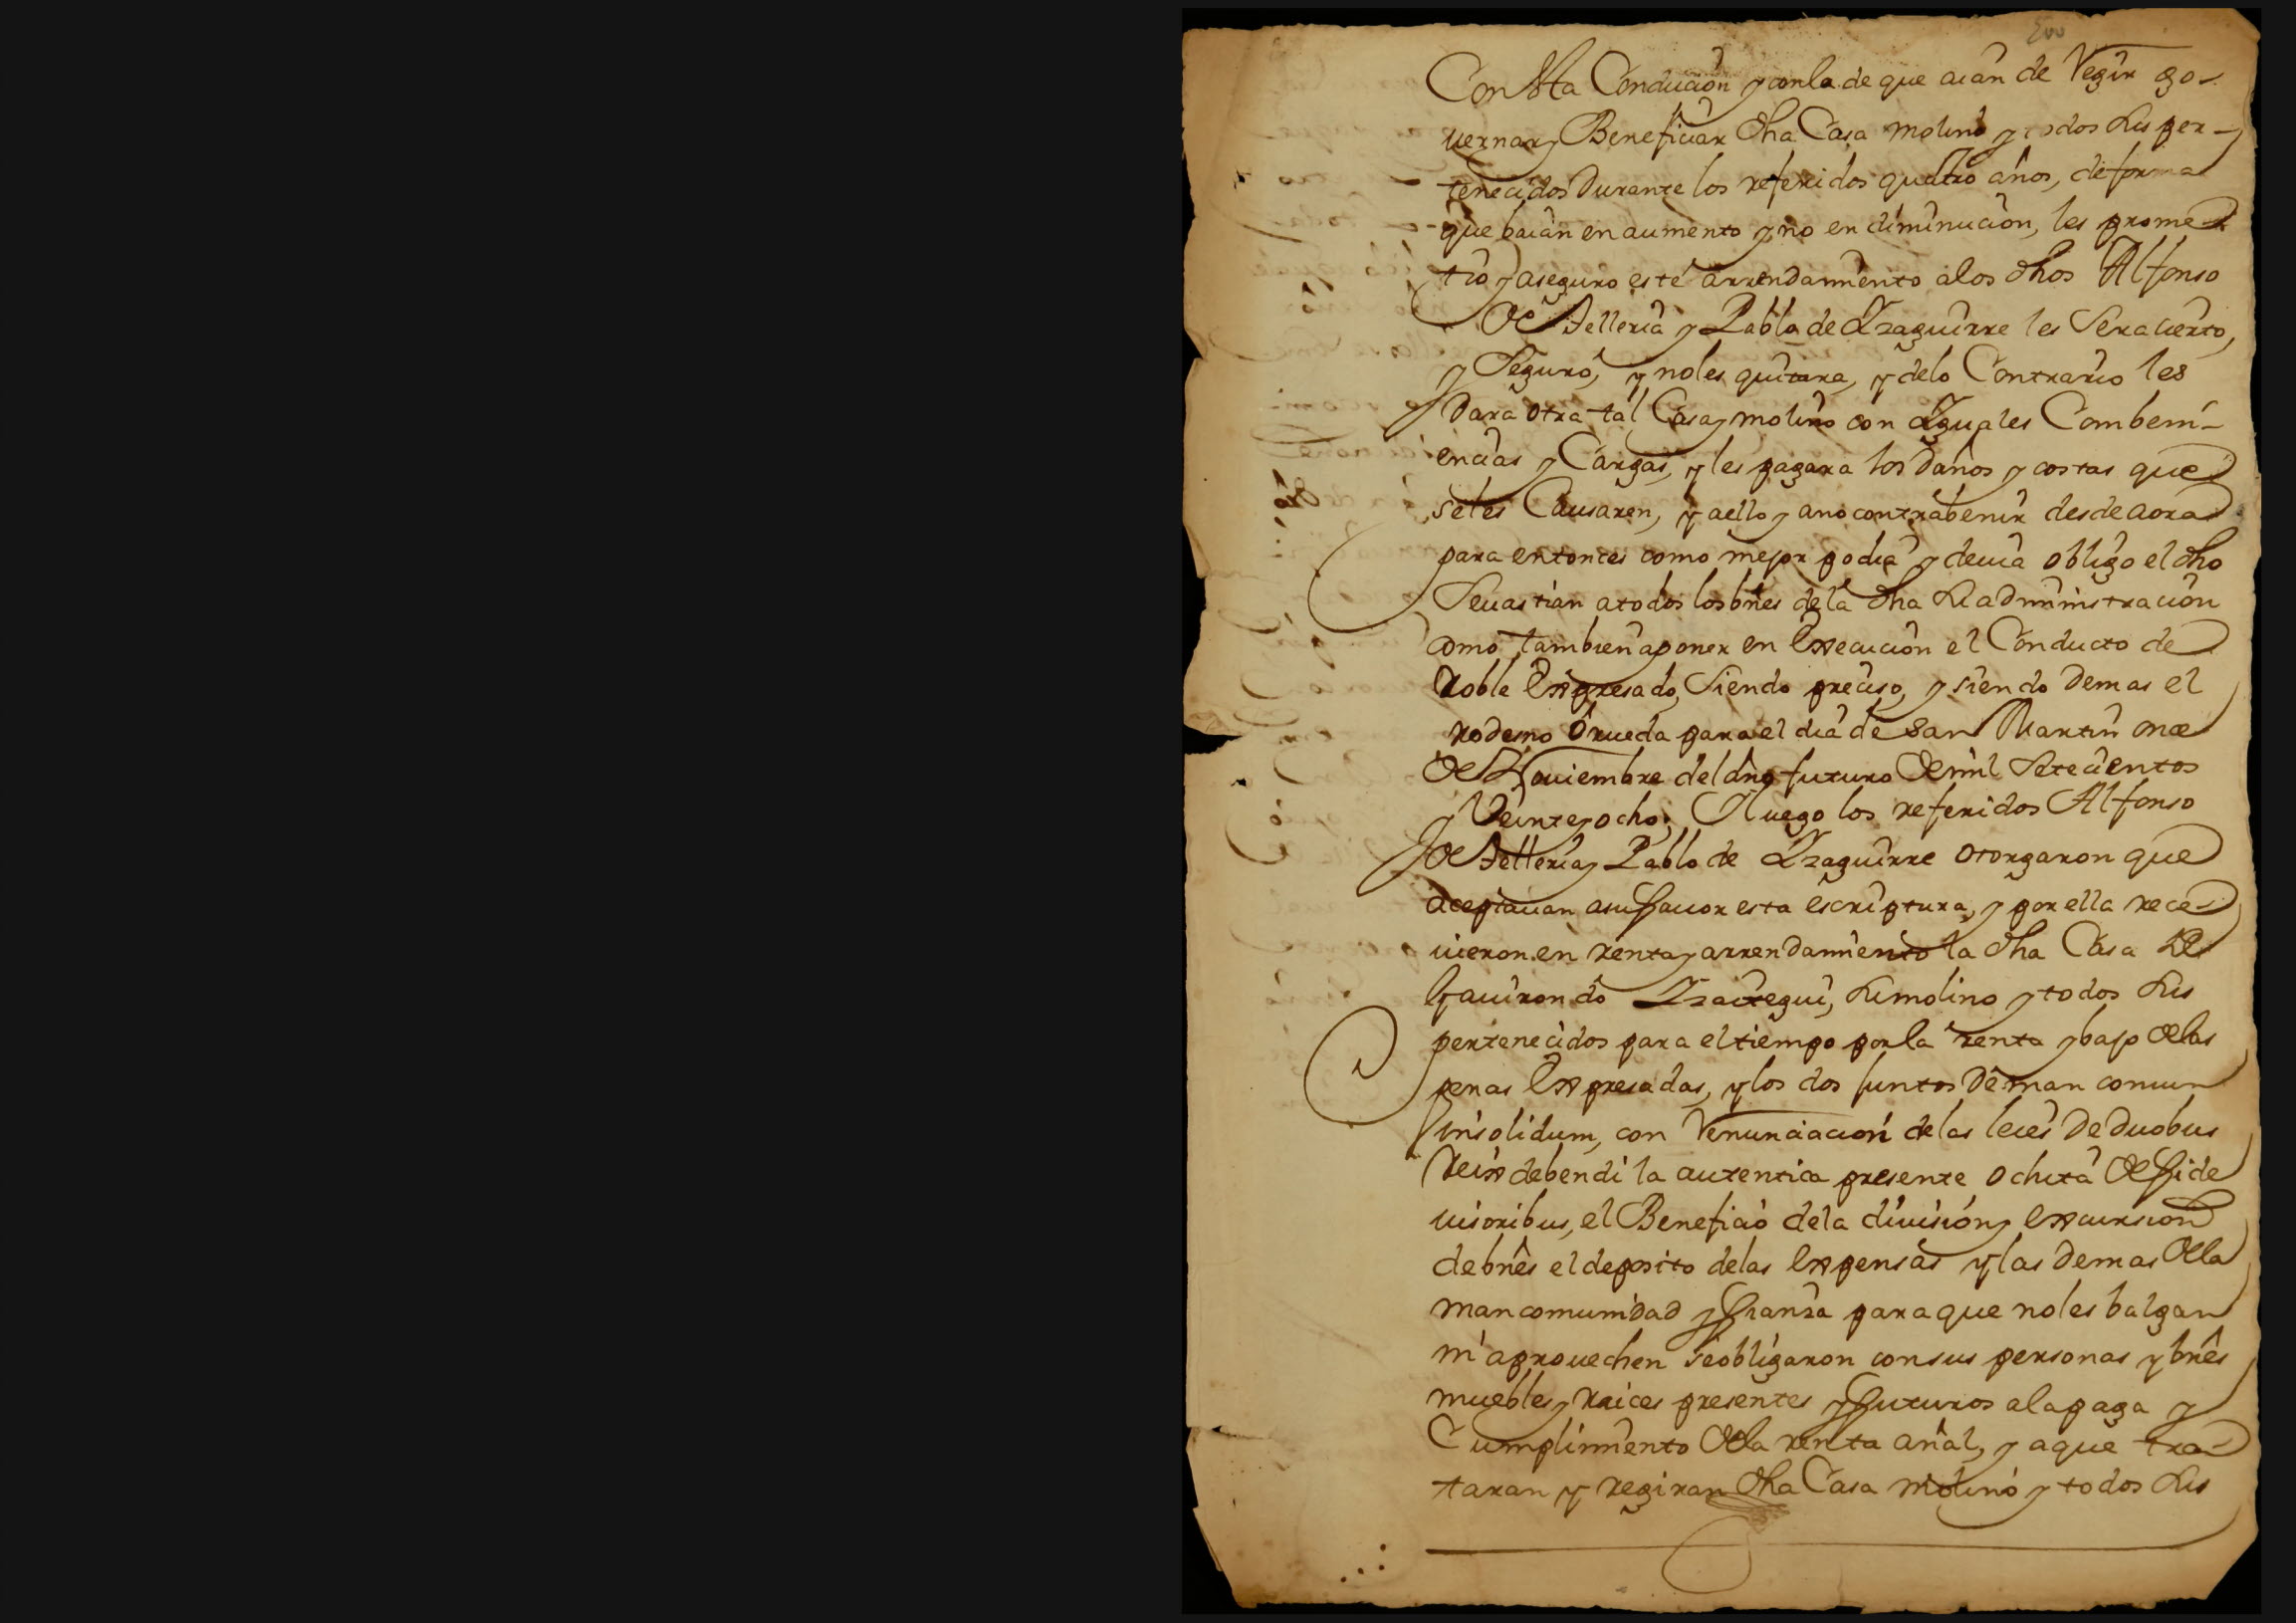 Con Sta Condicion y con la de que aian de Regir go-
uernar y Beneficiar dha Casa molino y todos sus per-
tenecidos Durante los referidos quatro años, de forma
que baian en aumento y no en diminucion, les prome-
tio y aseguro este arrendamiento a los dhos Alfonso
de Telleria y Pablo de Yzaguirre les Sera cierto,
y Seguro, y no les quitara, y de lo Contrario les
Dara otra tal Casa y molino con Yguales Combeni-
encias y Cargas, y les pagara los Daños y costas que
se les Causaren, y a ello y a no contrabenir desde aora
para entonces como mejor podia y deuia obligo el dho
Seuastian a todos los bñes de la dha su administracion
como tambien a poner en Execucion el Conducto de
Roble Expresado, Siendo preciso, y siendo Demas el
rodesno ó rueda para el dia de San Martin onze
de Nouiembre del año futuro de mil Setecientos
y Veinte y ocho; Y luego los referidos Alfonso
de Telleria y Pablo de Yzaguirre otorgaron que
aceptauan a su fauor esta escriptura, y por ella rece-
uieron en renta y arrendamiento la dha Casa de
Yzaitegui, su molino y todos sus
pertenecidos para el tiempo por la renta y bajo de las
penas Expresadas, y los dos Juntos De man comun
insolidum, con Renunciacion de las leies De duobus
Reix debendi la autentica presente ochita de fide
uisoribus, el Beneficio de la diuision y excursion
de bñes el deposito de las Expensas y las Demas de la
mancomunidad y fianza para que no les balgan
ni aprouechen se obligaron con sus personas y bñes
muebles y Raices presentes y futuros a la paga y
Cumplimiento de la renta añal, y a que tra-
taran y regiran dha Casa molino y todos sus